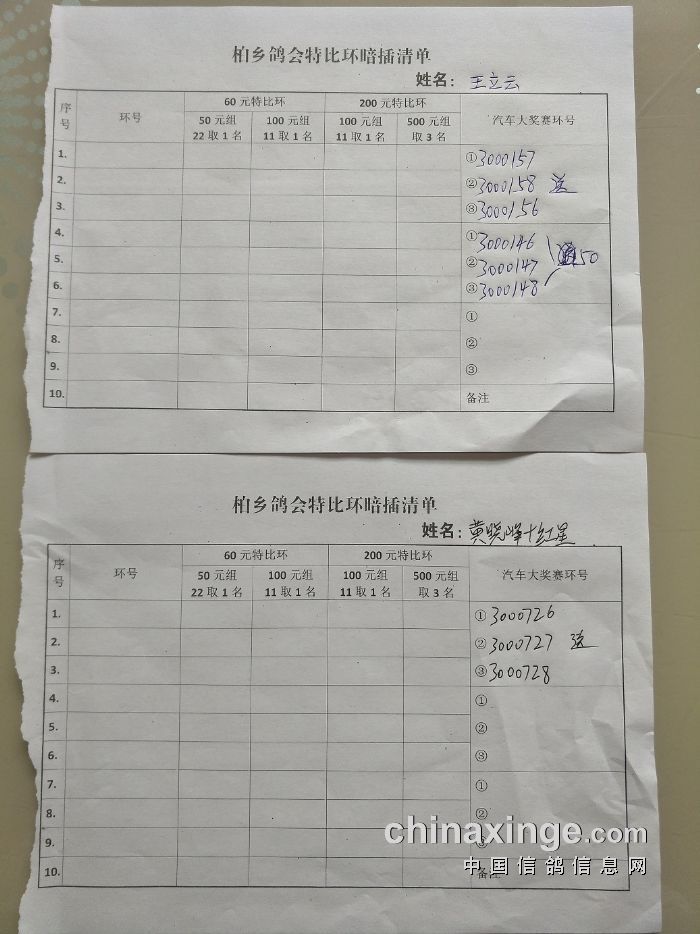 柏乡鸽会特比环暗插清单
姓名：王立云
序号 环号 60 元特比环 200 元特比环 汽车大奖赛环号
50 元组 100 元组 100 元组 500 元组
22 取 1 名 11 取 1 名 11 取 1 名 取 3 名
1. ①3000157
2. ②3000158 送
3. ③3000156
4. ①3000146
5. ②3000147 50
6. ③3000148
7. ①
8. ②
9. ③
10. 备注
柏乡鸽会特比环暗插清单
姓名：黄晓峰+红星
序号 环号 60 元特比环 200 元特比环 汽车大奖赛环号
50 元组 100 元组 100 元组 500 元组
22 取 1 名 11 取 1 名 11 取 1 名 取 3 名
1. ①3000726
2. ②3000727 送
3. ③3000728
4. ①
5. ②
6. ③
7. ①
8. ②
9. ③
10. 备注
chinaxinge.com
中国信鸽信息网